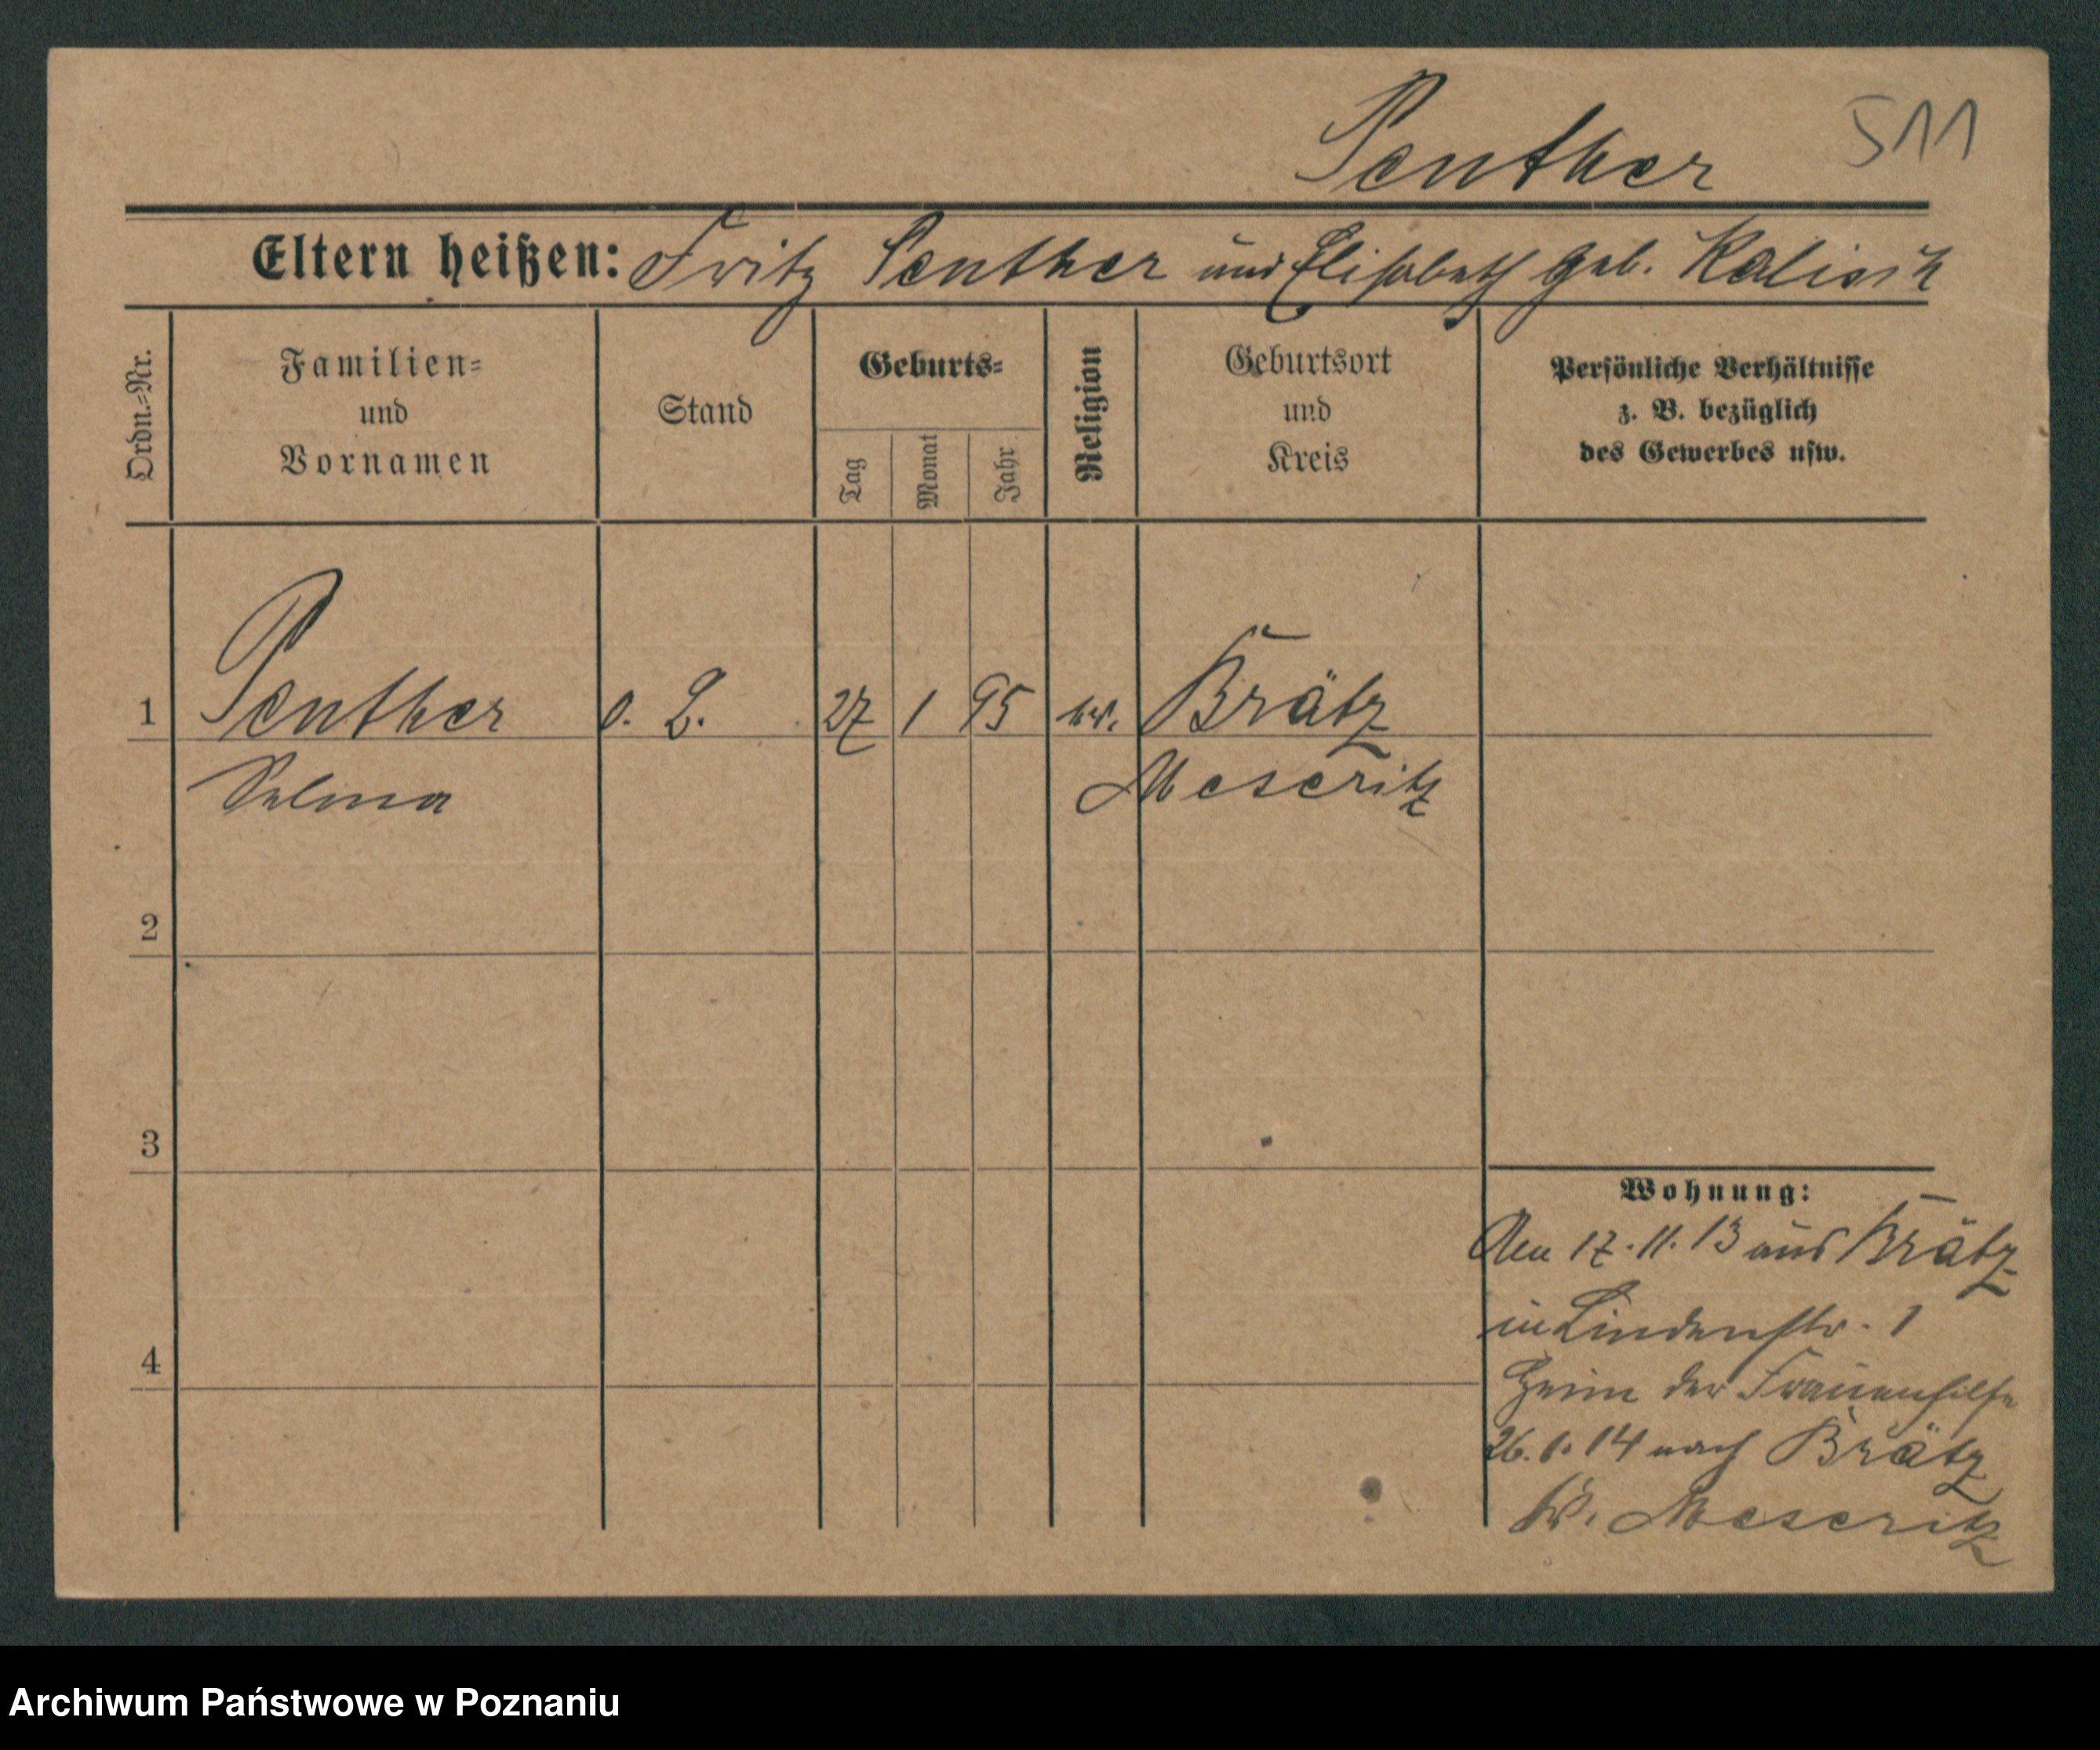 Penther 511
Eltern heißen: Fritz Penther und Elisabeth geb. Kalisch
Ordn.=Nr.
Familien=
und
Vornamen
Stand
Geburts=
Tag
Monat
Jahr
Religion
Geburtsort
und
Kreis
Persönliche Verhältnisse
z. B. bezüglich
des Gewerbes usw.
1 Penther o. B. 27 1 95 ev. Brätz
Selma Meseritz
2
3
4
Wohnung:
Am 17.11.13 aus Brätz
in Lindenstr. 1
Heim der Frauenhilfe
26.1.14 nach Brätz
Kr. Meseritz
Archiwum Państwowe w Poznaniu